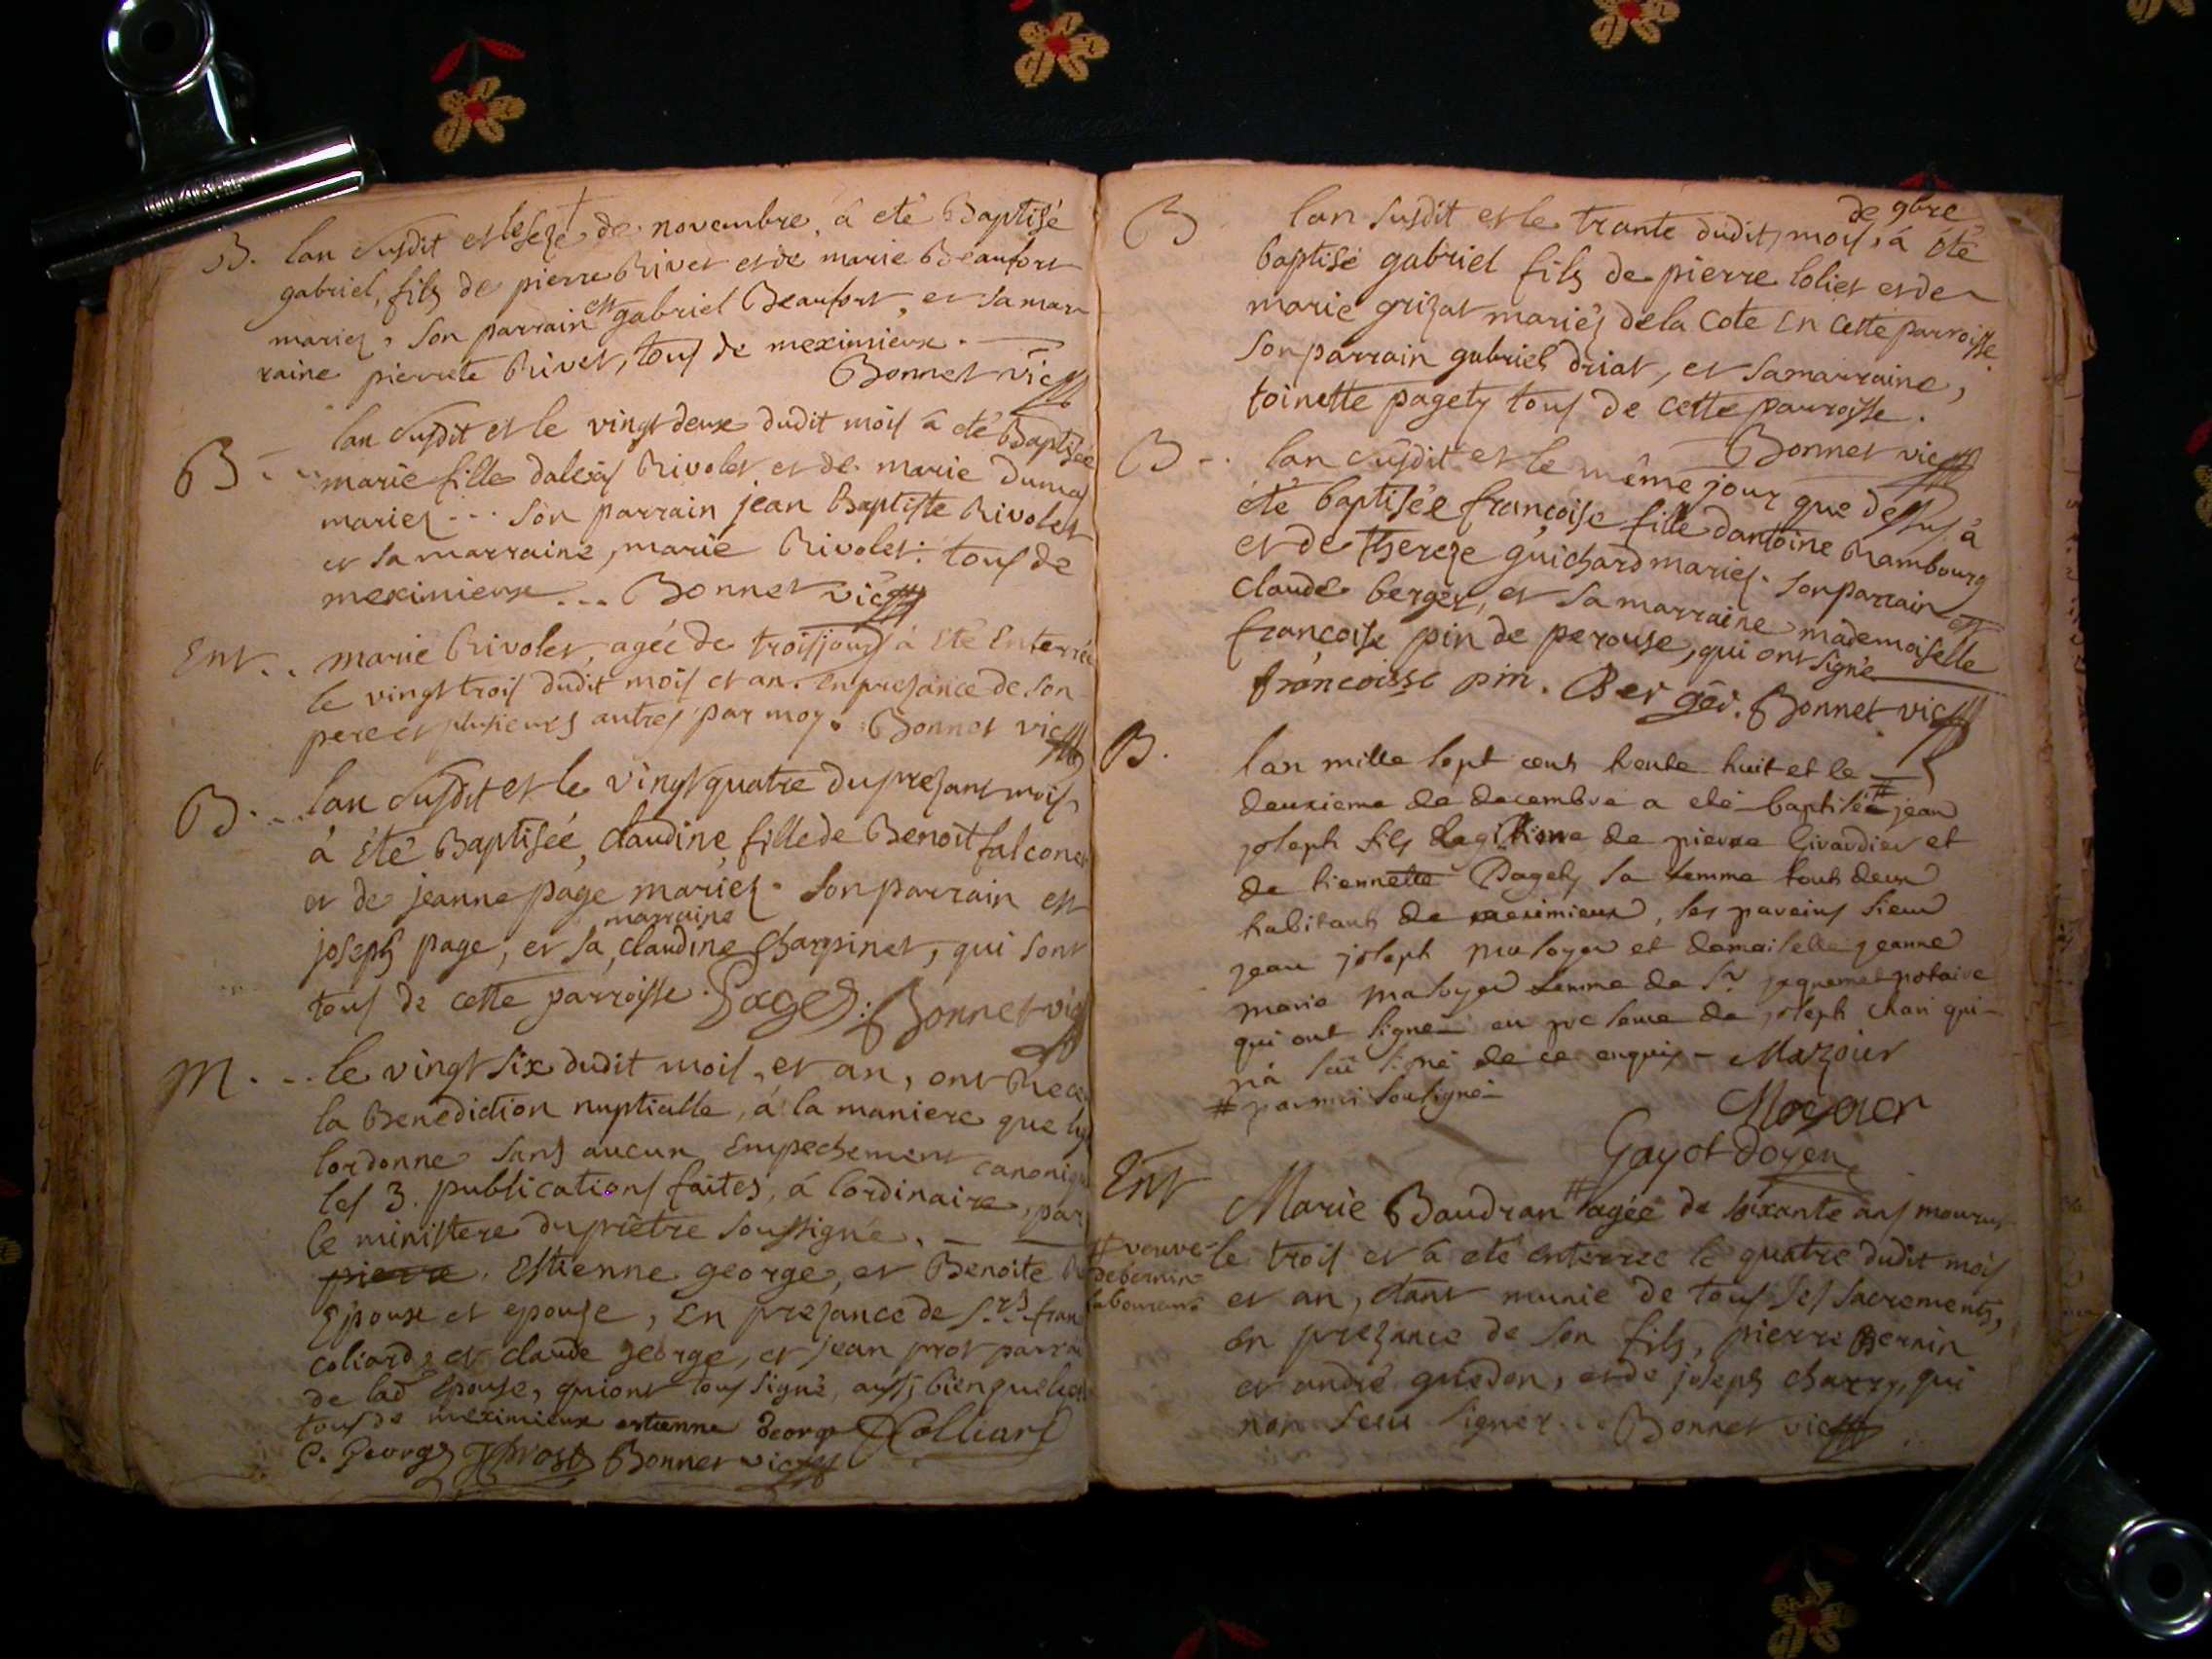 B. lan susdit et le seze de novembre, à eté Baptisé
gabriel, fils de pierre Rivet et de marie Beaufort
mariez, Son parrain est gabriel Beaufort, et sa mar
raine pierrete Rivet, tous de meximieux.
Bonnet vic
B lan susdit et le vingt deux dudit mois à eté Baptisée
marie fille dalexis Rivolet et de marie dumas
mariez... Son parrain jean Baptiste Rivolet
et sa marraine, marie Rivolet: tous de
meximieux... Bonnet vic
Ent.. marie Rivolet, agée de trois jours à Eté Enterrée
le vingt trois dudit mois et an. En presance de son
pere et plusieurs autres par moy. Bonnet vic
B... lan susdit et le vingt quatre du presant mois
à été Baptisée, claudine, fille de Benoit falconet
et de jeanne page mariez. Son parrain est
marraine
joseph page, et sa claudine Charpinet, qui sont
tous de cette parroisse. Page: Bonnet vic
M... le vingt six dudit mois, et an, ont Rece
la Benediction nuptialle, à la maniere que
lordonne sans aucun Empechement canonique
les 3. publications faites, à lordinaire, par
le ministere du prêtre soussigné.
pierre. Estienne george, et Benoite
Epoux et epouse, En presance de Srs. fran
coliard, et claude george, et jean prost parrain
de lad epouse, qui ont tous signé, aussi bien que
tous de meximieux estienne George Colliard
C. George JProst Bonnet vic
B lan susdit et le trante dudit mois, à été
de 9bre
baptisé gabriel fils de pierre loliet et de
marie grizat mariéz dela Cote En cette parroisse.
Son parrain gabriel driat, et sa marraine,
toinette pagety tous de cette parroisse.
Bonnet vic
B.. lan susdit et le même jour que dessus à
été baptisée françoise fille dantoine Rambourg
et de thereze guichard mariez. Son parrain est
claude berger, et sa marraine mademoiselle
françoise pin de perouse, qui ont signé
francoisse pin. Berger. Bonnet vic
B. lan mille sept cens trente huit et le
deuxieme de decembre a eté baptisé # jean
joseph fils legitime de pierre Girardier et
de tiennette Pagety sa femme tous deux
habitants de meximieux, ses pareins sieur
jean joseph Masoyer et demaiselle jeanne
marie Masoyer femme de Sr jaquemet notaire
qui ont signé en presence de joseph chari qui
na sçû signé de ce enquis - Mazoier
# parmoi soussigné
Mazoier
Gayot doyen
Ent Marie Baudran # agée de soixante ans mourut
le trois et à eté enterree le quatre dudit mois
# veuve
de bernin
laboureur
et an, etant munie de tous ses sacrements,
en presance de son fils, pierre Bernin
et andré guedon, et de joseph charry, qui
non sceu signer... Bonnet vic